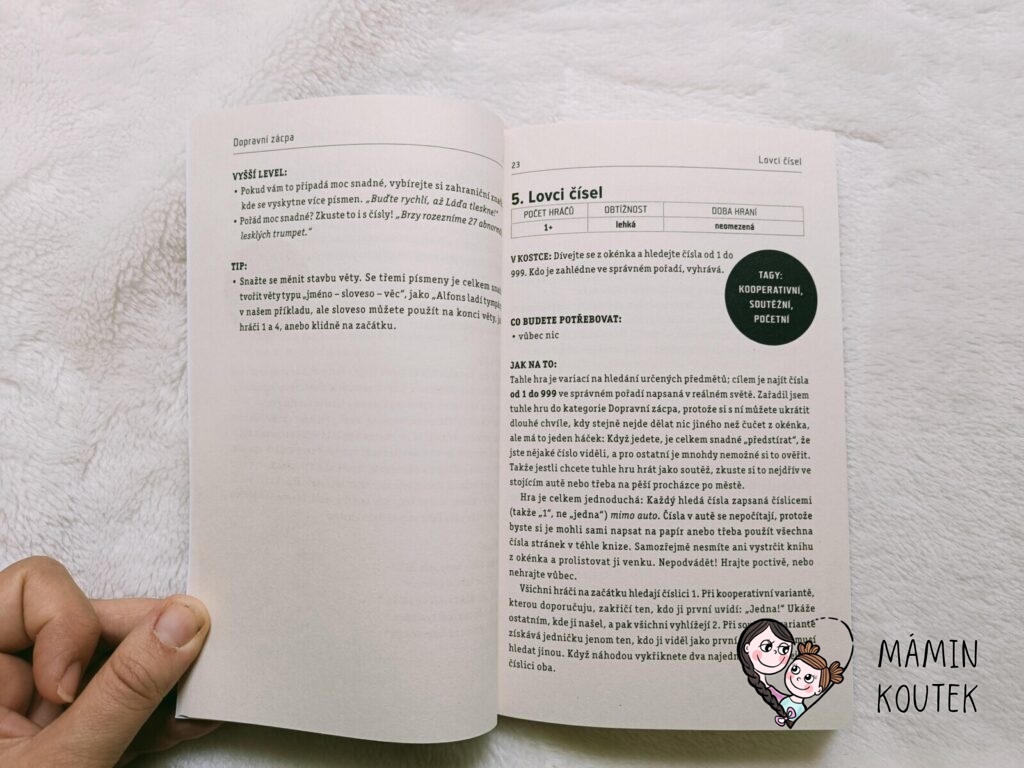 Dopravní zácpa
VYŠŠÍ LEVEL:
• Pokud vám to připadá moc snadné, vybírejte si zahraniční
kde se vyskytne více písmen. „Buďte rychlí, až Láďa tleskne!"
• Pořád moc snadné? Zkuste to i s čísly! „Brzy rozezníme 27
lesklých trumpet."
TIP:
• Snažte se měnit stavbu věty. Se třemi písmeny je celkem
tvořit věty typu „jméno – sloveso – věc", jako „Alfons ladí
v našem příkladu, ale sloveso můžete použít na konci věty,
hráči 1 a 4, anebo klidně na začátku.
23
Lovci čísel
5. Lovci čísel
POČET HRÁČŮ OBTÍŽNOST DOBA HRANÍ
1+ lehká neomezená
V KOSTCE: Dívejte se z okénka a hledejte čísla od 1 do
999. Kdo je zahlédne ve správném pořadí, vyhrává.
TAGY:
KOOPERATIVNÍ,
SOUTĚŽNÍ,
POČETNÍ
CO BUDETE POTŘEBOVAT:
• vůbec nic
JAK NA TO:
Tahle hra je variací na hledání určených předmětů; cílem je najít čísla
od 1 do 999 ve správném pořadí napsaná v reálném světě. Zařadil jsem
tuhle hru do kategorie Dopravní zácpa, protože si s ní můžete ukrátit
dlouhé chvíle, kdy stejně nejde dělat nic jiného než čučet z okénka,
ale má to jeden háček: Když jedete, je celkem snadné „předstírat", že
jste nějaké číslo viděli, a pro ostatní je mnohdy nemožné si to ověřit.
Takže jestli chcete tuhle hru hrát jako soutěž, zkuste si to nejdřív ve
stojícím autě nebo třeba na pěší procházce po městě.
Hra je celkem jednoduchá: Každý hledá čísla zapsaná číslicemi
(takže „1", ne „jedna") mimo auto. Čísla v autě se nepočítají, protože
byste si je mohli sami napsat na papír anebo třeba použít všechna
čísla stránek v téhle knize. Samozřejmě nesmíte ani vystrčit knihu
z okénka a prolistovat ji venku. Nepodvádět! Hrajte poctivě, nebo
nehrajte vůbec.
Všichni hráči na začátku hledají číslici 1. Při kooperativní variantě,
kterou doporučuju, zakřičí ten, kdo ji první uvidí: „Jedna!" Ukáže
ostatním, kde ji našel, a pak všichni vyhlížejí 2. Při variantě
získává jedničku jenom ten, kdo ji viděl jako první musí
hledat jinou. Když náhodou vykřiknete dva najedn
číslici oba.
MÁMIN
KOUTEK